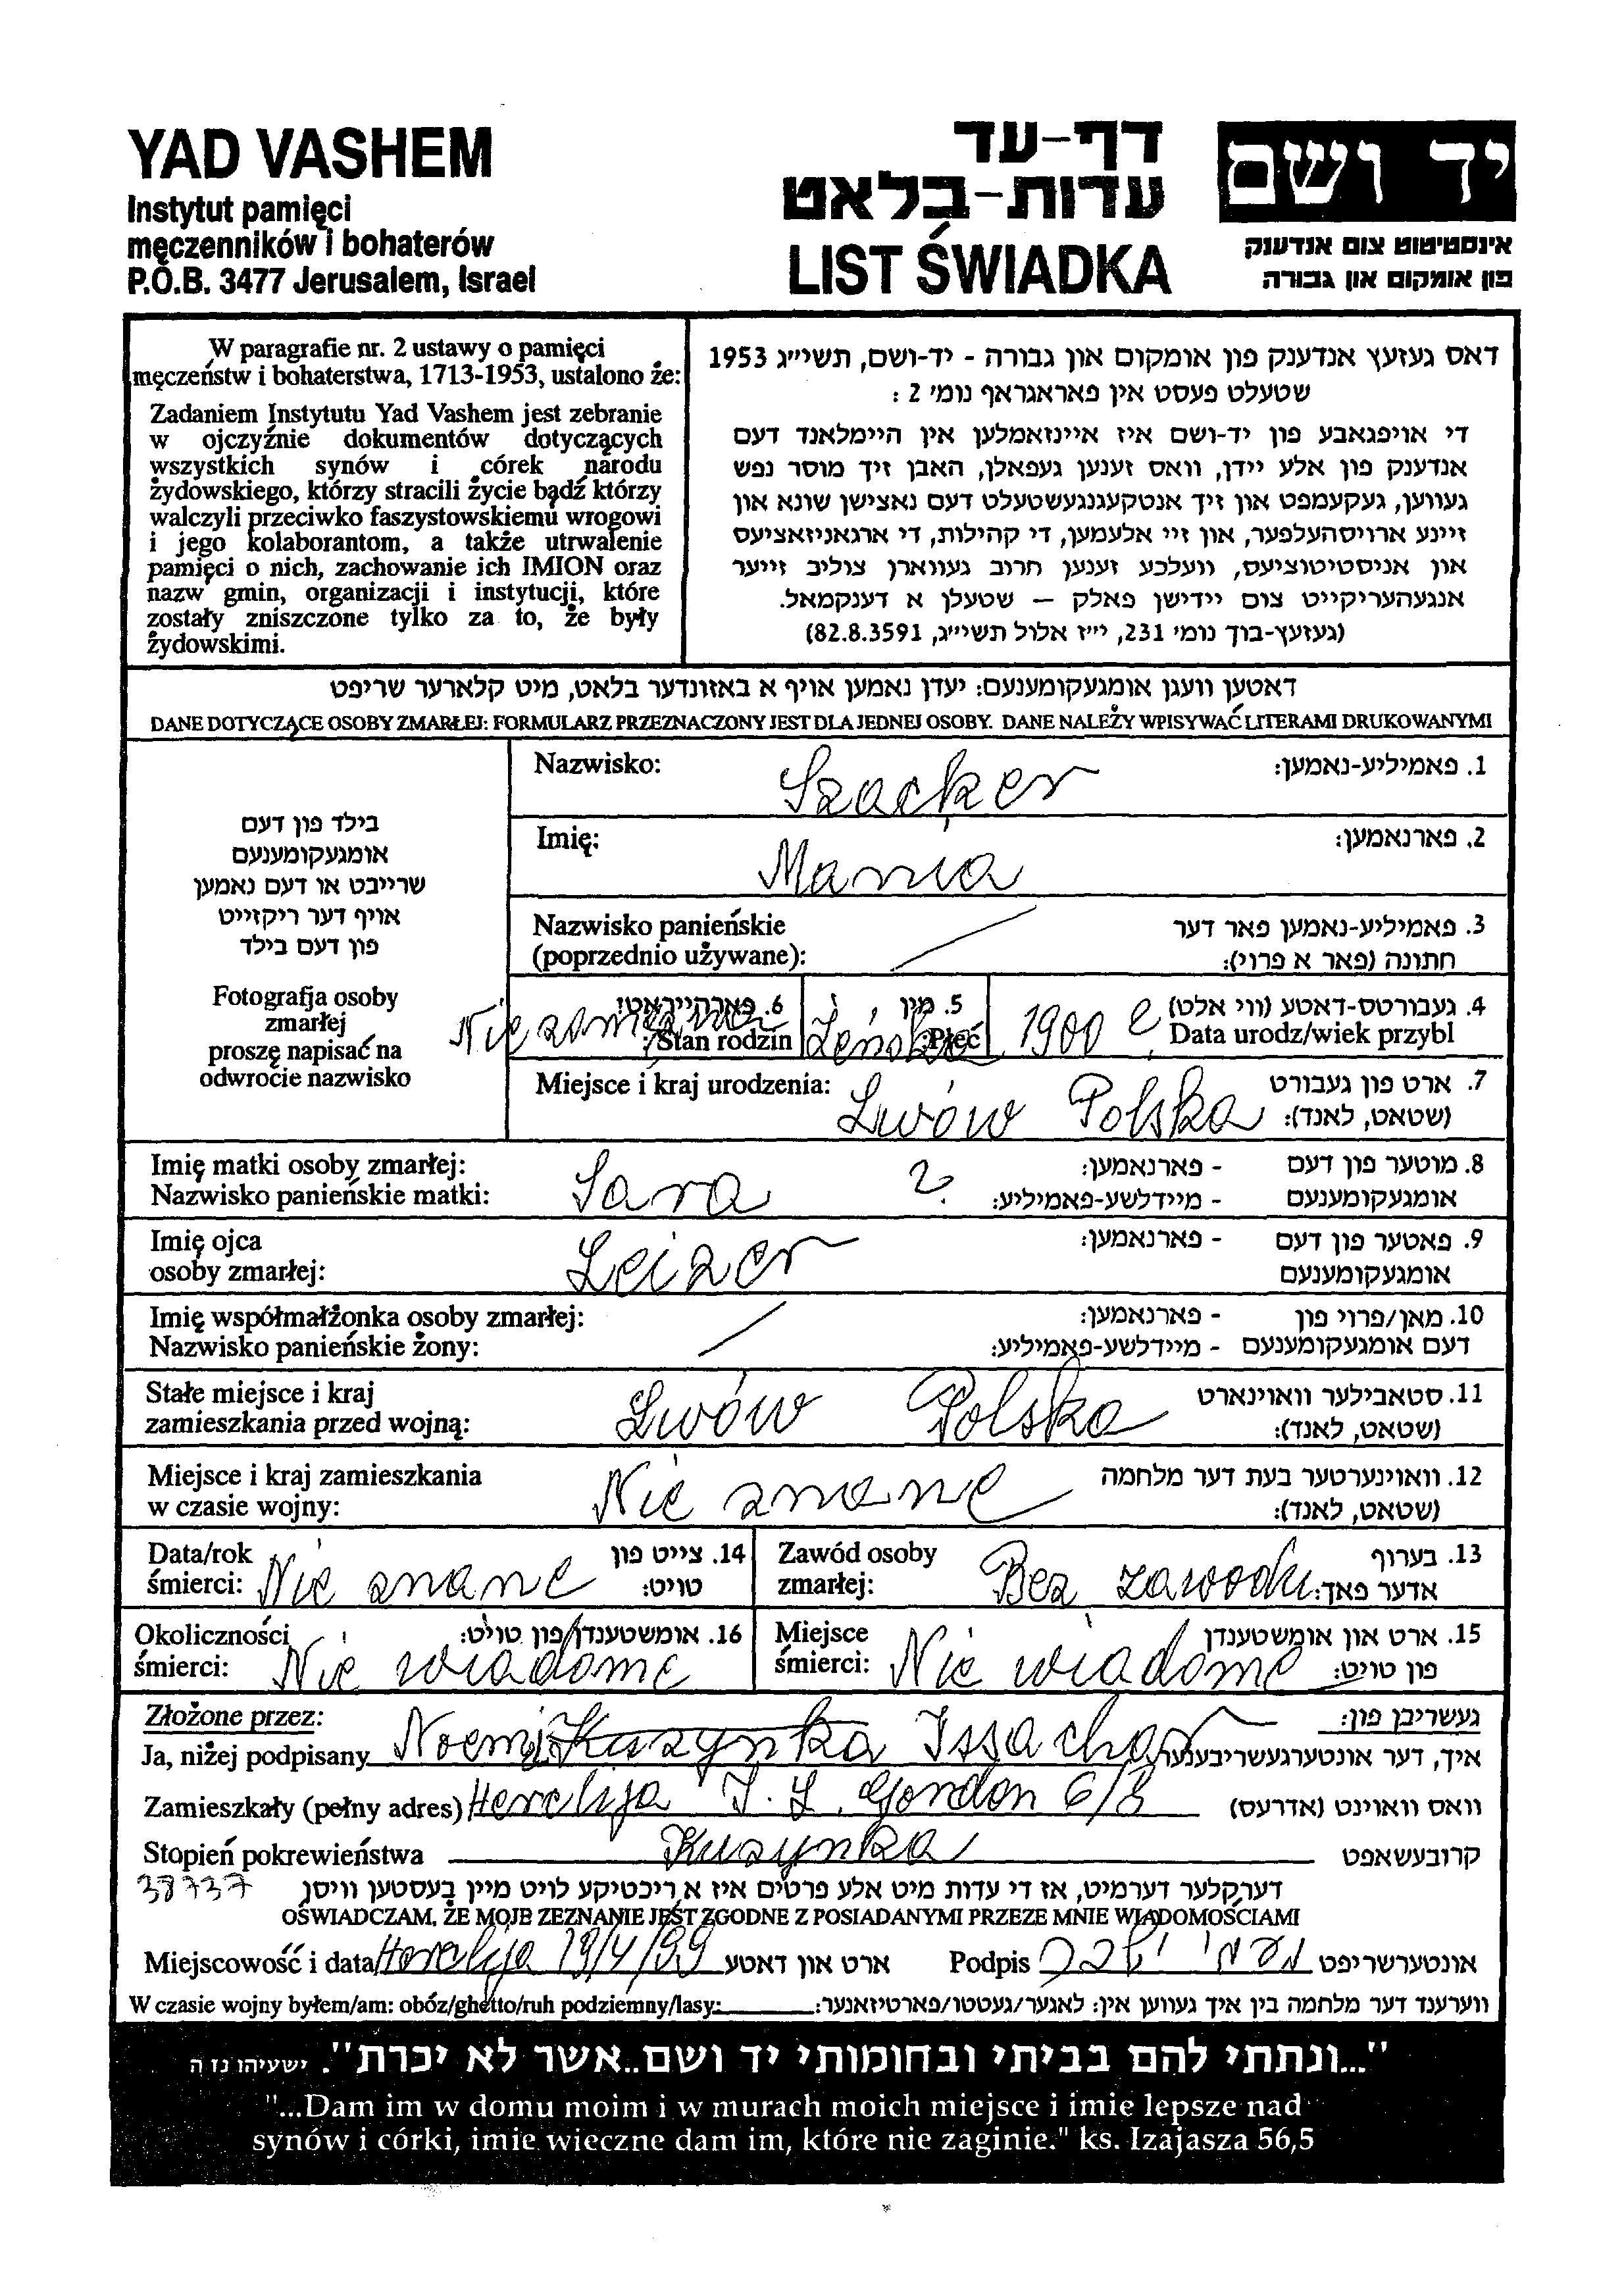 YAD VASHEM
Instytut pamięci
męczenników i bohaterów
P.O.B. 3477 Jerusalem, Israel
דף-עד
עדות-בלאט
LIST ŚWIADKA
יד ושם
אינסטיטוט צום אנדענק
פון אומקום און גבורה
W paragrafie nr. 2 ustawy o pamięci
męczeństw i bohaterstwa, 1713-1953, ustalono że:
Zadaniem Instytutu Yad Vashem jest zebranie
w ojczyźnie dokumentów dotyczących
wszystkich synów i córek narodu
żydowskiego, którzy stracili życie bądź którzy
walczyli przeciwko faszystowskiemu wrogowi
i jego kolaborantom, a także utrwalenie
pamięci o nich, zachowanie ich IMION oraz
nazw gmin, organizacji i instytucji, które
zostały zniszczone tylko za to, że były
żydowskimi.
דאס געזעץ אנדענק פון אומקום און גבורה - יד-ושם, תשי״ג 1953
שטעלט פעסט אין פאראגראף נומ׳ 2 :
די אויפגאבע פון יד-ושם איז איינזאמלען אין היימלאנד דעם
אנדענק פון אלע יידן, וואס זענען געפאלן, האבן זיך מוסר נפש
געווען, געקעמפט און זיך אנטקעגנגעשטעלט דעם נאצישן שונא און
זיינע ארויסהעלפער, און זיי אלעמען, די קהילות, די ארגאניזאציעס
און אניסטיטוציעס, וועלכע זענען חרוב געווארן צוליב זייער
אנגעהעריקייט צום יידישן פאלק – שטעלן א דענקמאל.
(געזעץ-בוך נומ׳ 231, י״ז אלול תשי״ג, 82.8.3591)
דאטען וועגן אומגעקומענעם: יעדן נאמען אויף א באזונדער בלאט, מיט קלארער שריפט
DANE DOTYCZĄCE OSOBY ZMARŁEJ: FORMULARZ PRZEZNACZONY JEST DLA JEDNEJ OSOBY. DANE NALEŻY WPISYWAĆ LITERAMI DRUKOWANYMI
בילד פון דעם
אומגעקומענעם
שרייבט או דעם נאמען
אויף דער ריקזייט
פון דעם בילד
Fotografja osoby
zmarłej
proszę napisać na
odwrocie nazwisko
Nazwisko: Szacker 1. פאמיליע-נאמען:
Imię: Mania 2. פארנאמען:
Nazwisko panieńskie 3. פאמיליע-נאמען פאר דער
(poprzednio używane): / חתונה (פאר א פרוי):
Niezamężna 6. פארהייראט: 5. מין 4. געבורטס-דאטע (ווי אלט)
Stan rodzin Żeńska Płeć 1900 Data urodz/wiek przybl
Miejsce i kraj urodzenia: Lwów Polska 7. ארט פון געבורט
(שטאט, לאנד):
Imię matki osoby zmarłej: Sara ? - פארנאמען: 8. מוטער פון דעם
Nazwisko panieńskie matki: - מיידלשע-פאמיליע: אומגעקומענעם
Imię ojca - פארנאמען: 9. פאטער פון דעם
osoby zmarłej: Leizer אומגעקומענעם
Imię współmałżonka osoby zmarłej: - פארנאמען: 10. מאן/פרוי פון
Nazwisko panieńskie żony: / - מיידלשע-פאמיליע: דעם אומגעקומענעם
Stałe miejsce i kraj 11. סטאבילער וואוינארט
zamieszkania przed wojną: Lwów Polska (שטאט, לאנד):
Miejsce i kraj zamieszkania 12. וואוינערטער בעת דער מלחמה
w czasie wojny: Nie znane (שטאט, לאנד):
Data/rok 14. צייט פון Zawód osoby 13. בערוף
śmierci: Nie znane טויט: zmarłej: Bez zawodu אדער פאך:
Okoliczności 16. אומשטענדן פון טויט: Miejsce 15. ארט און אומשטענדן
śmierci: Nie wiadome śmierci: Nie wiadome פון טויט:
Złożone przez: געשריבן פון:
Ja, niżej podpisany Noemi Kuzynka Issachar איך, דער אונטערגעשריבענער
Zamieszkały (pełny adres) Herclija J. L. Gordon 6/8 וואס וואוינט (אדרעס)
Stopień pokrewieństwa Kuzynka קרובעשאפט
38737 דערקלער דערמיט, אז די עדות מיט אלע פרטים איז א ריכטיקע לויט מיין בעסטען וויסן
OŚWIADCZAM, ŻE MOJE ZEZNANIE JEST ZGODNE Z POSIADANYMI PRZEZE MNIE WIADOMOŚCIAMI
Miejscowość i data Herclija 19/4/99 ארט און דאטע Podpis נעמי יששכר אונטערשריפט
W czasie wojny byłem/am: obóz/ghetto/ruh podziemny/lasy: ווערענד דער מלחמה בין איך געווען אין: לאגער/געטטו/פארטיזאנער:
"...ונתתי להם בביתי ובחומותי יד ושם..אשר לא יכרת". ישעיהו נז ה
"...Dam im w domu moim i w murach moich miejsce i imie lepsze nad
synów i córki, imie wieczne dam im, które nie zaginie." ks. Izajasza 56,5